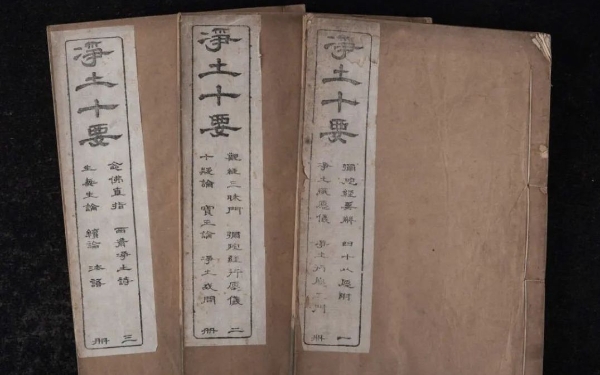 淨土十要
彌陀經要解 四十八願附
淨土懺願儀 淨土行願二門
一册
淨土十要
觀經三昧門 彌陀經行願儀
十疑論 寶王論 淨土或問
二册
淨土十要
念佛直指 西齋淨土詩
生無生論 續論 法語
三册